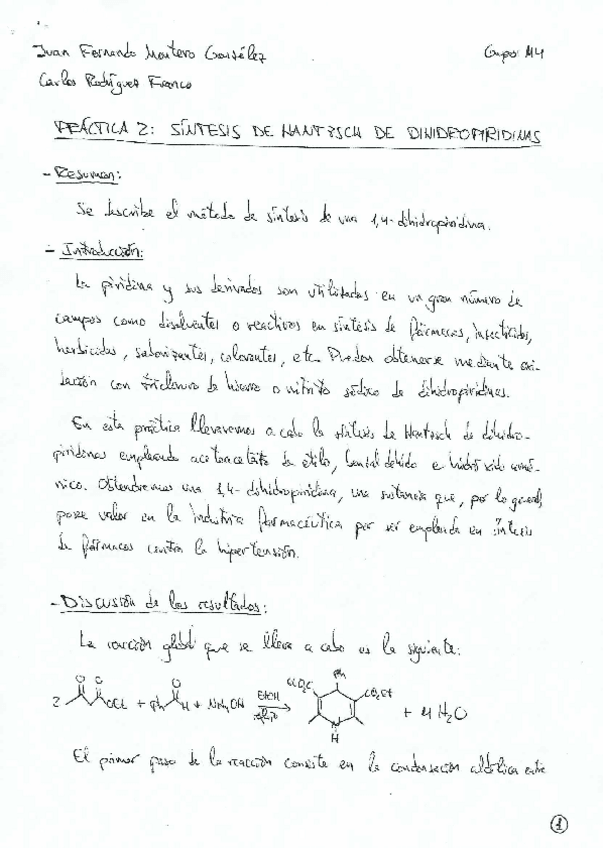 Juan Fernando Montero González Grupo M4
Carlos Rodríguez Franco
PRÁCTICA 2: SÍNTESIS DE HANTZSCH DE DIHIDROPIRIDINAS
- Resumen:
Se describe el método de síntesis de una 1,4-dihidropiridina.
- Introducción:
La piridina y sus derivados son utilizados en un gran número de
campos como disolventes o reactivos en síntesis de fármacos, insecticidas,
herbicidas, saborizantes, colorantes, etc. Pueden obtenerse mediante oxi-
dación con tricloruro de hierro o nitrito sódico de dihidropiridinas.
En esta práctica llevaremos a cabo la síntesis de Hantzsch de dihidro-
piridinas empleando acetoacetato de etilo, benzaldehído e hidróxido amó-
nico. Obtendremos una 1,4-dihidropiridina, una sustancia que, por lo general,
posee valor en la industria farmacéutica por ser empleada en síntesis
de fármacos contra la hipertensión.
- Discusión de los resultados:
La reacción global que se lleva a cabo es la siguiente:
O O O Ph
2 OEt + Ph H + NH4OH EtOH CO2Et + 4 H2O
N
H
El primer paso de la reacción consiste en la condensación aldólica entre
1